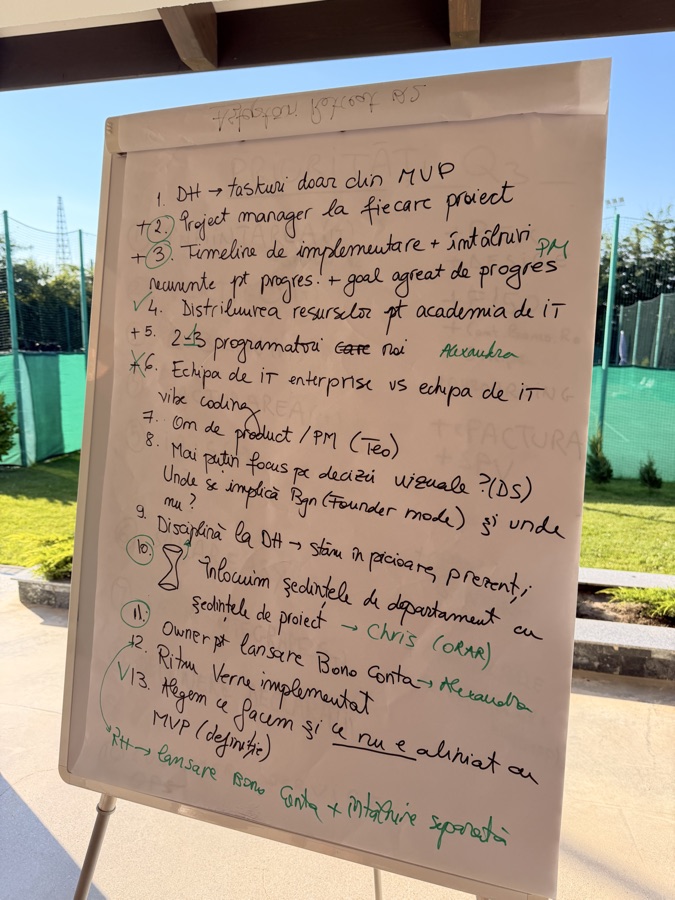 Așteptări Retreat DS
1. DH → taskuri doar din MVP
+ 2. Project manager la fiecare proiect
+ 3. Timeline de implementare + întâlniri PM
recurente pt progres. + goal agreat de progres
✓ 4. Distribuirea resurselor pt academia de iT
+ 5. 2-3 programatori care noi Alexandra
6. Echipa de iT enterprise vs echipa de iT
vibe coding
7. Om de product / PM (Teo)
8. Mai puțin focus pe decizii vizuale ? (DS)
Unde se implică Bgn (Founder mode) și unde
nu?
9. Disciplină la DH → stăm în picioare, prezenți
10. Înlocuim ședințele de departament cu
ședințele de proiect → Chris (ORAR)
11. Owner pt lansare Bono Conta → Alexandra
12. Ritm Verne implementat
✓ 13. Alegem ce facem și ce nu e aliniat cu
MVP (definiție)
RH → lansare Bono Conta + întâlnire separată